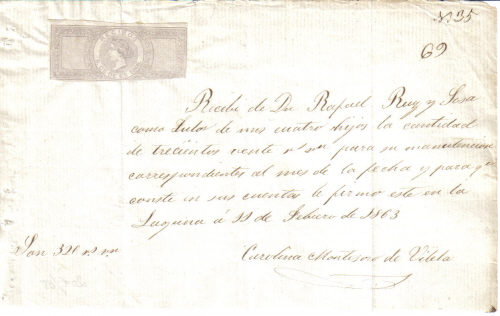 N. 35
69
Recibi de Dn. Rafael Ruy y Sosa
como tutor de mis cuatro hijos la cantidad
de trecientos vente rs. vn. para su manutencion
correspondientes al mes de la fecha y para qe.
conste en sus cuentas le firmo este en la
Laguna á 11 de Febrero de 1863
Son 320 rs. vn.
Carolina Montesoro de Vilela